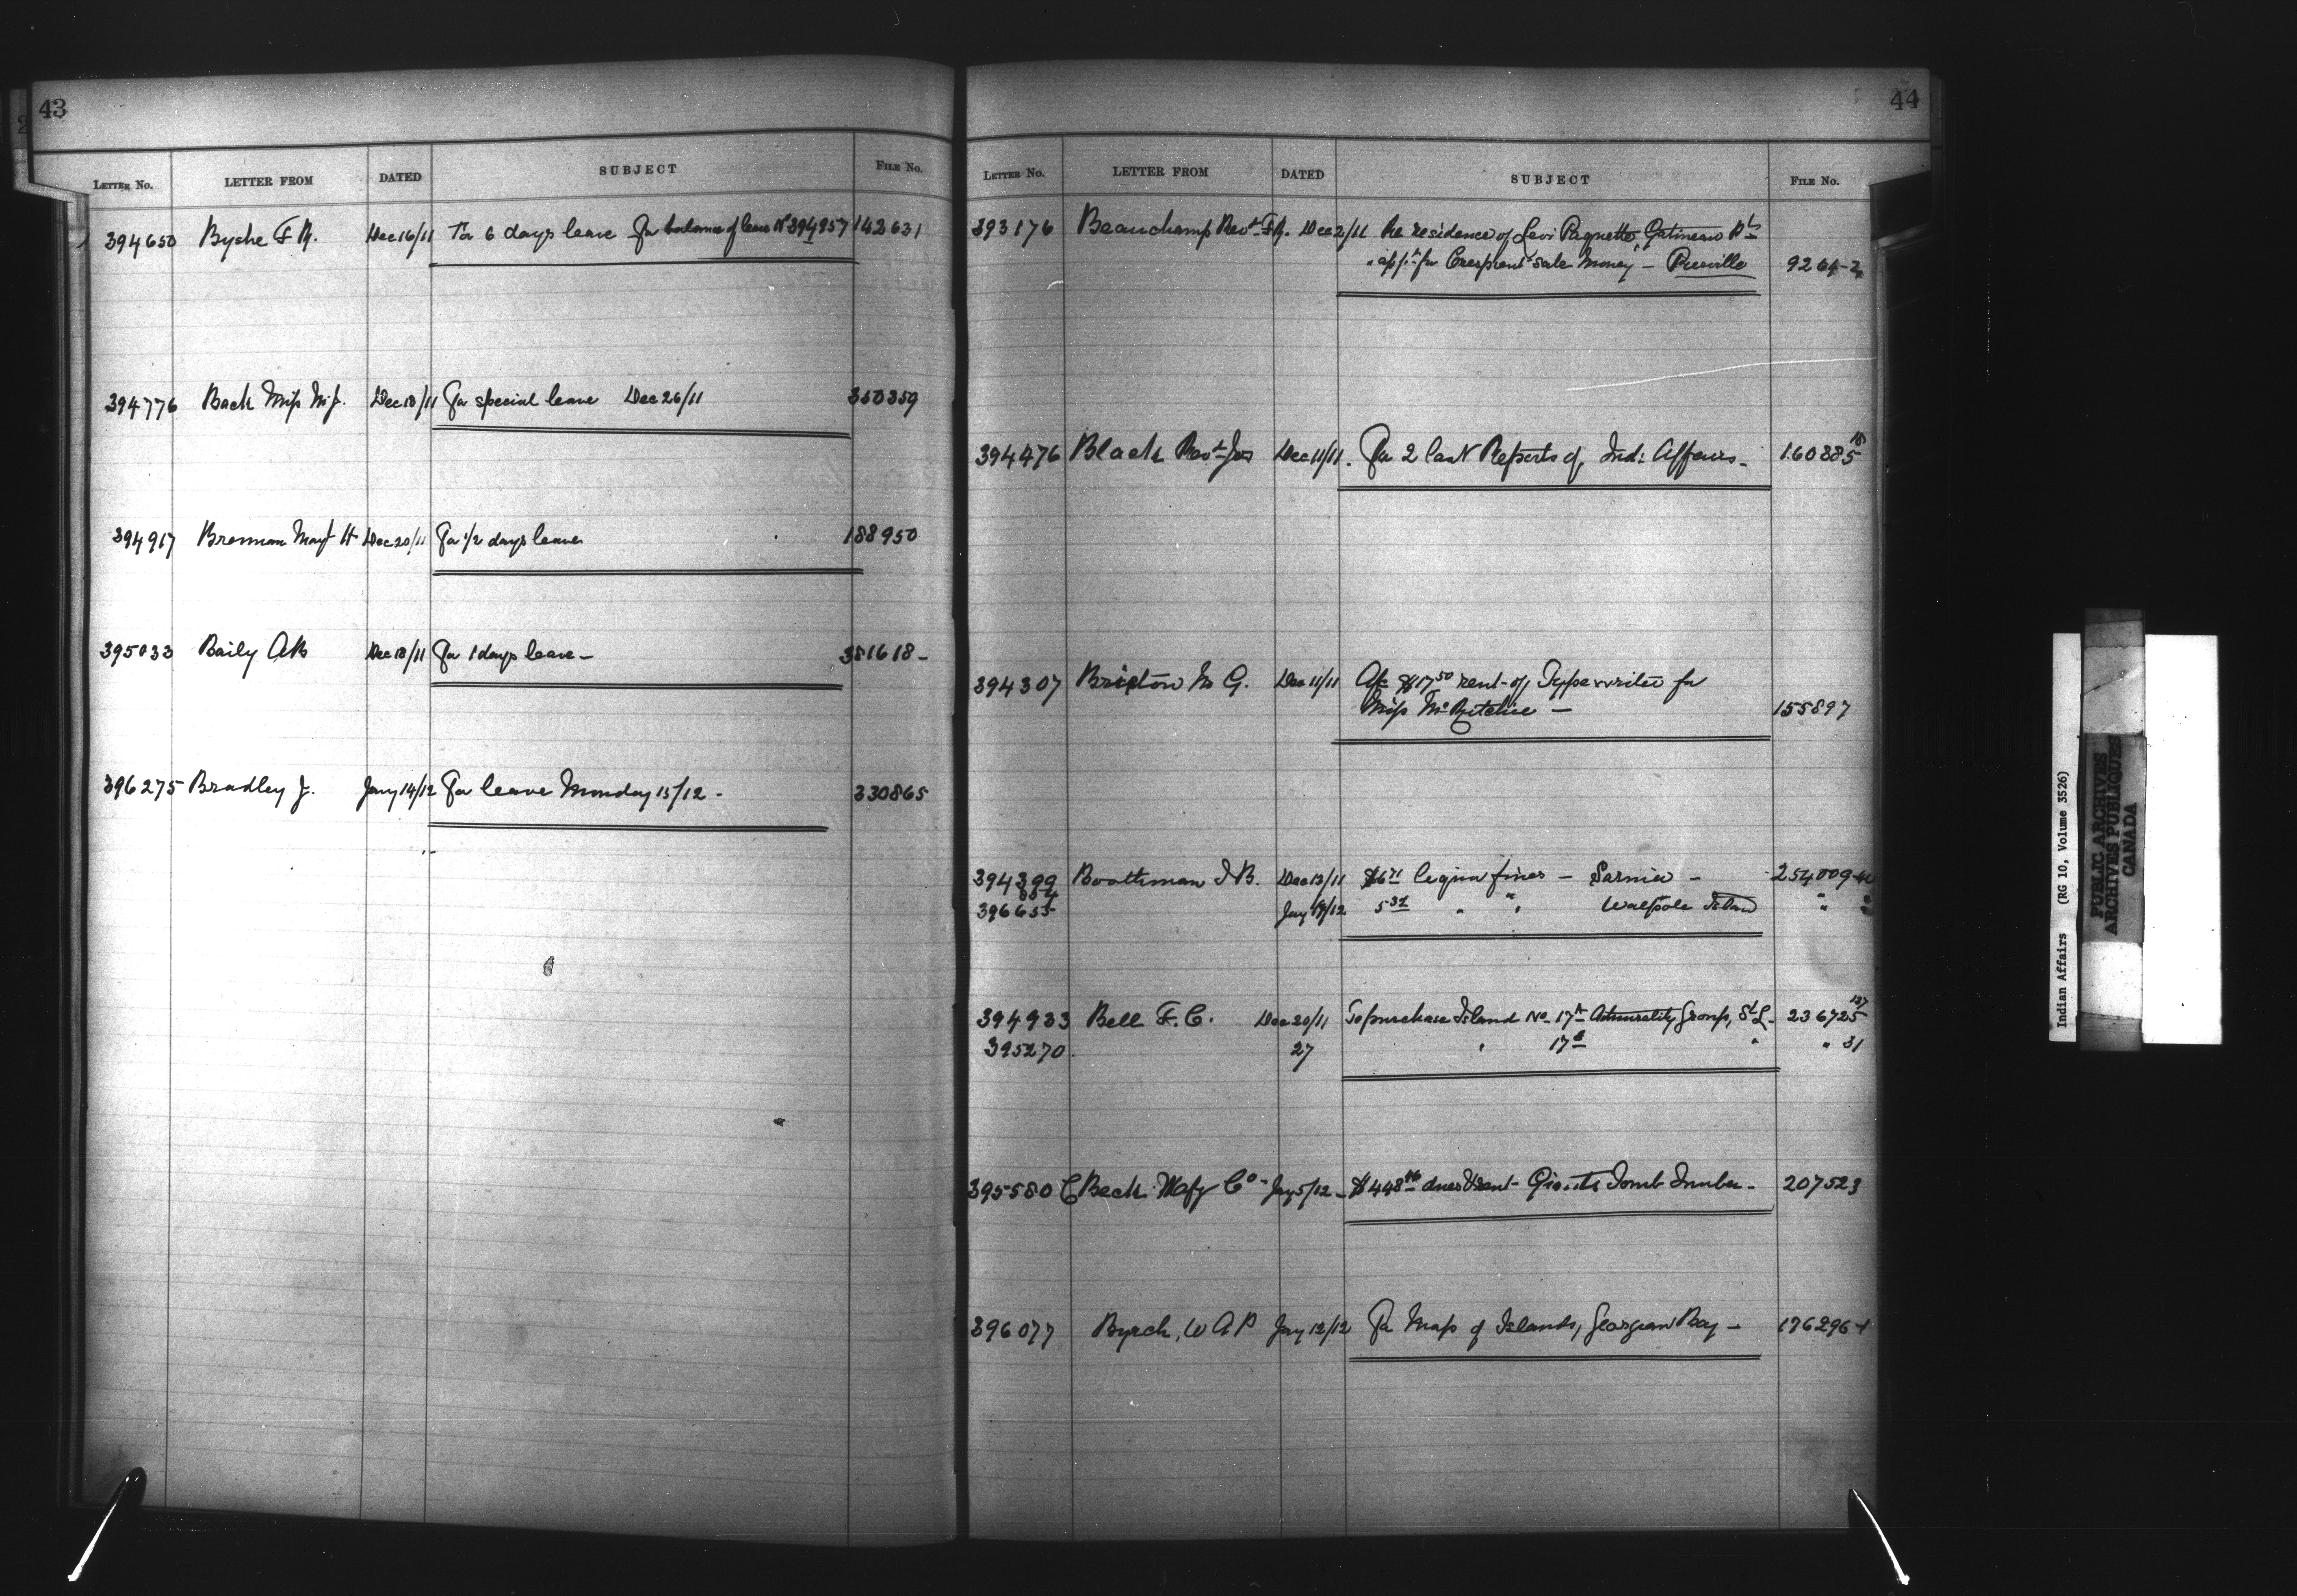 43
LETTER No. LETTER FROM DATED SUBJECT FILE No.
394650 Byshe F R. Dec 16/11 For 6 days leave For balance of leave No 394957 142631
394776 Back Miss M.J. Dec 18/11 For special leave Dec 26/11 350359
394917 Brennan H Dec 20/11 For 1/2 days leave 188950
395033 Baily AB Dec 18/11 For 1 days leave - 381618 -
396275 Bradley J. Jany 14/12 For leave Monday 15/12 - 330865
44
LETTER No. LETTER FROM DATED SUBJECT FILE No.
393176 Beauchamp Revd Dec 2/11 Re residence of Levi Paquette, Gatineau Pt
for sale money - 9264-2
394476 Black Revd Jas Dec 11/11. For 2 last Reports of Ind: Affairs - 160388 5
394307 M G. Dec 11/11 $17 50 rent of Typewriter for
Miss McRitchie - 155897
394399 Boothman I B. Dec 13/11 fines - Sarnia - 254009
396655 Jay 19/12 5 32 " " Walpole Island " "
394933 Bell F. C. Dec 20/11 To purchase Island No 17A Admiralty Group, St L. 236725 137
395270 27 " 17B " " 31
395580 C Beck Mafg Co - Jay 5/12 - $448 dues Giants Tomb - 207523
396077 Byrch, W A P Jay 12/12 For Map of Islands, Georgian Bay - 176296-1
Indian Affairs (RG 10, Volume 3526)
PUBLIC ARCHIVES
ARCHIVES PUBLIQUES
CANADA